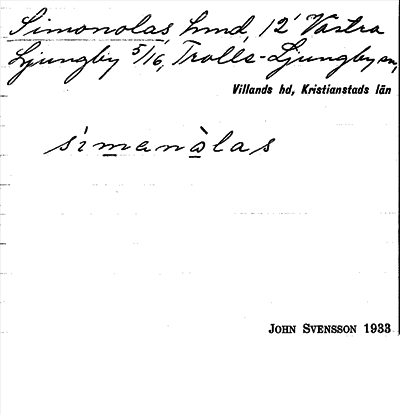 Simonolas, hmd, 12' Västra
Ljungby 5/16, Trolle-Ljungby sn,
Villands hd, Kristianstads län
simanàlas
JOHN SVENSSON 1933